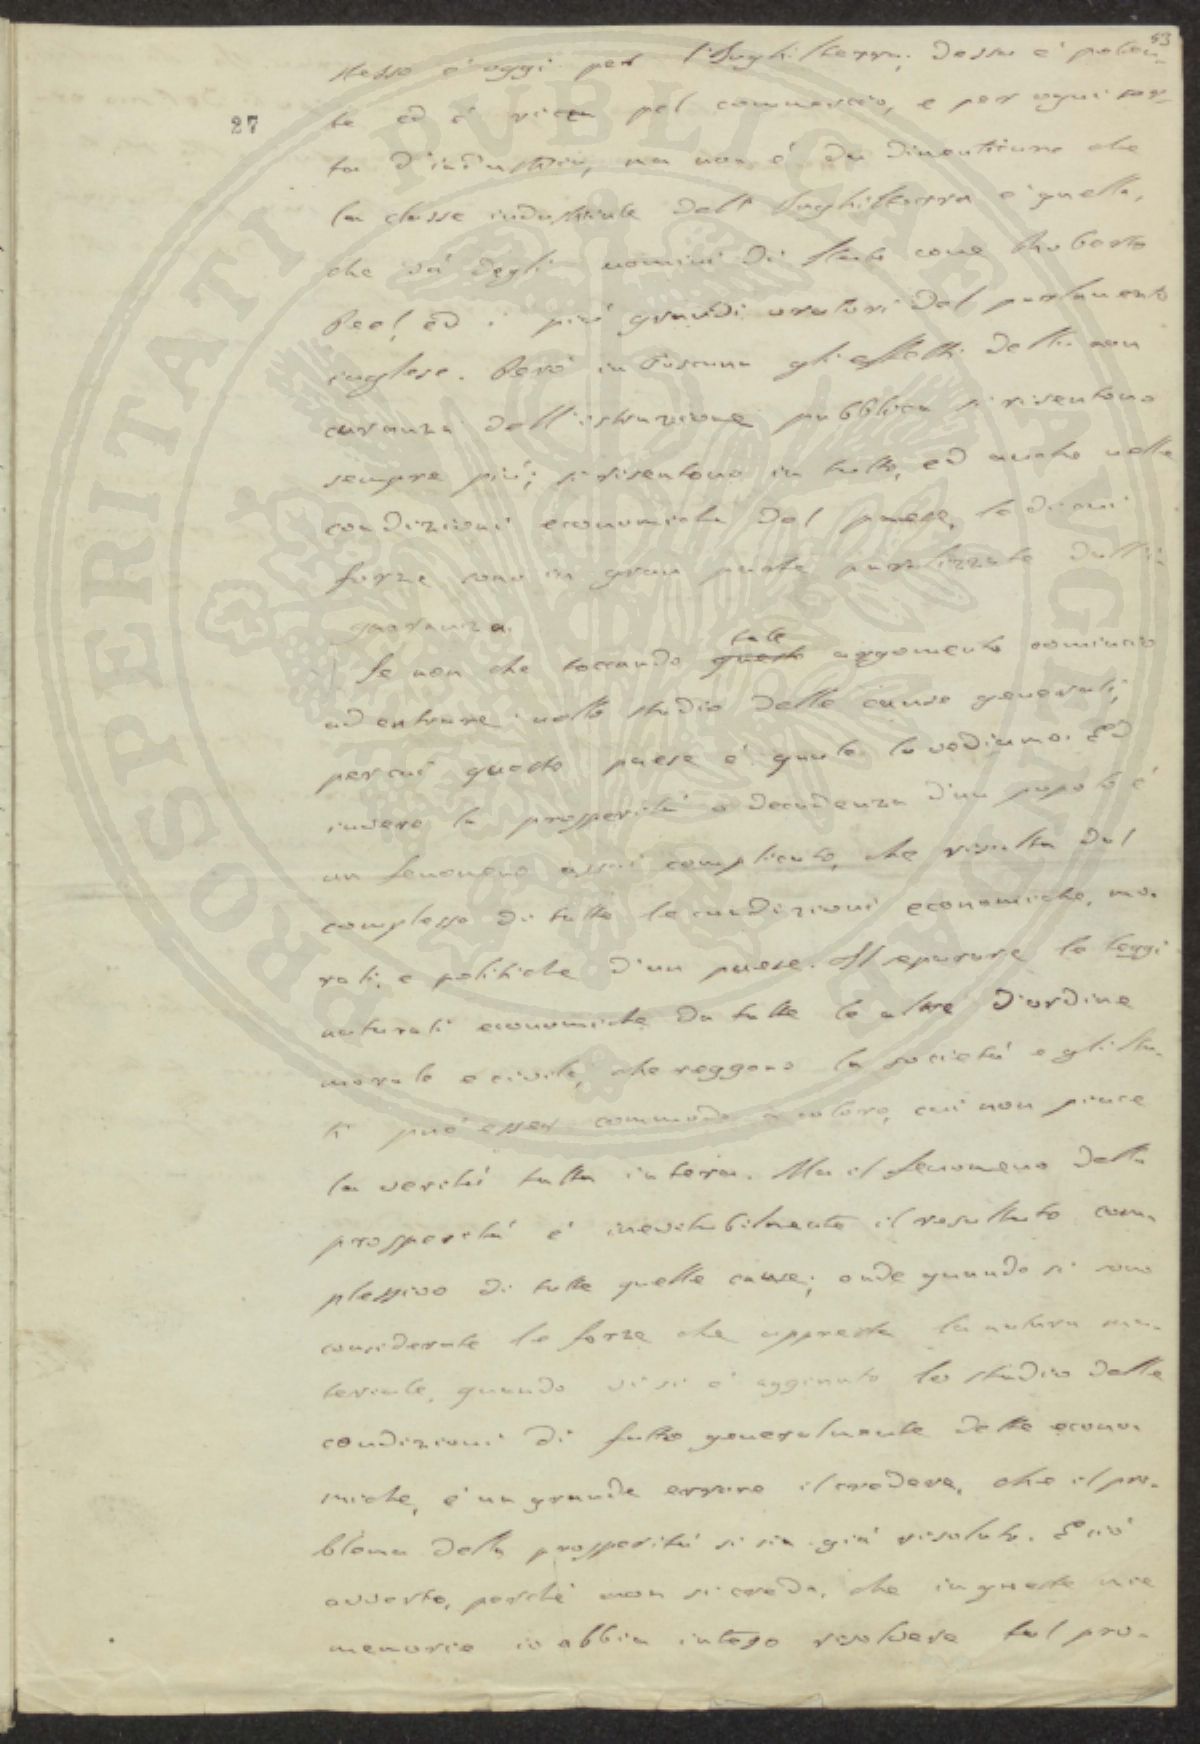 53
stesso è oggi per l'Inghilterra; dessa è poten-
27
te ed è ricca pel commercio, e per ogni sor-
ta d'industria, ma non è da dimenticare che
la classe industriale dell'Inghilterra è quella,
che dà degli uomini di stato come Roberto
Peel ed i più grandi oratori del parlamento
inglese. Però in Toscana gli effetti della non
curanza dell'istruzione pubblica si risentono
sempre più; si risentono in tutto, ed anche nelle
condizioni economiche del paese, le di cui
forze sono in gran parte paralizzate dall'i-
gnoranza.
tale
Se non che toccando questo argomento comincio
ad entrare nello studio delle cause generali,
per cui questo paese è quale lo vediamo. Ed
invero la prosperità o decadenza d'un popolo è
un fenomeno assai complicato, che risulta dal
complesso di tutte le condizioni economiche, mo-
rali, e politiche d'un paese. Il separare le leggi
naturali economiche da tutte le altre d'ordine
morale e civile, che reggono la società e gli sta-
ti può esser commodo a coloro, cui non piace
la verità tutta intera. Ma il fenomeno della
prosperità è inevitabilmente il resultato com-
plessivo di tutte quelle cause; onde quando si sono
considerate le forze che appresta la natura ma-
teriale, quando vi si è aggiunto lo studio delle
condizioni di fatto generalmente dette econo-
miche, è un grande errore il credere, che il pro-
blema della prosperità si sia già risoluto. E ciò
avverto, perchè non si creda, che in queste mie
memorie io abbia inteso risolvere tal pro-
PROSPERITATI PUBLICAE AUGENDAE